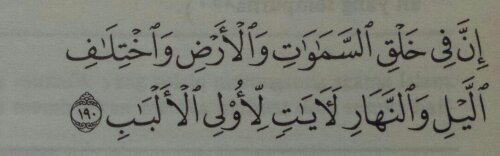 إِنَّ فِي خَلْقِ ٱلسَّمَٰوَٰتِ وَٱلْأَرْضِ وَٱخْتِلَٰفِ
ٱلَّيْلِ وَٱلنَّهَارِ لَـَٔايَٰتٍ لِّأُو۟لِى ٱلْأَلْبَٰبِ ١٩٠